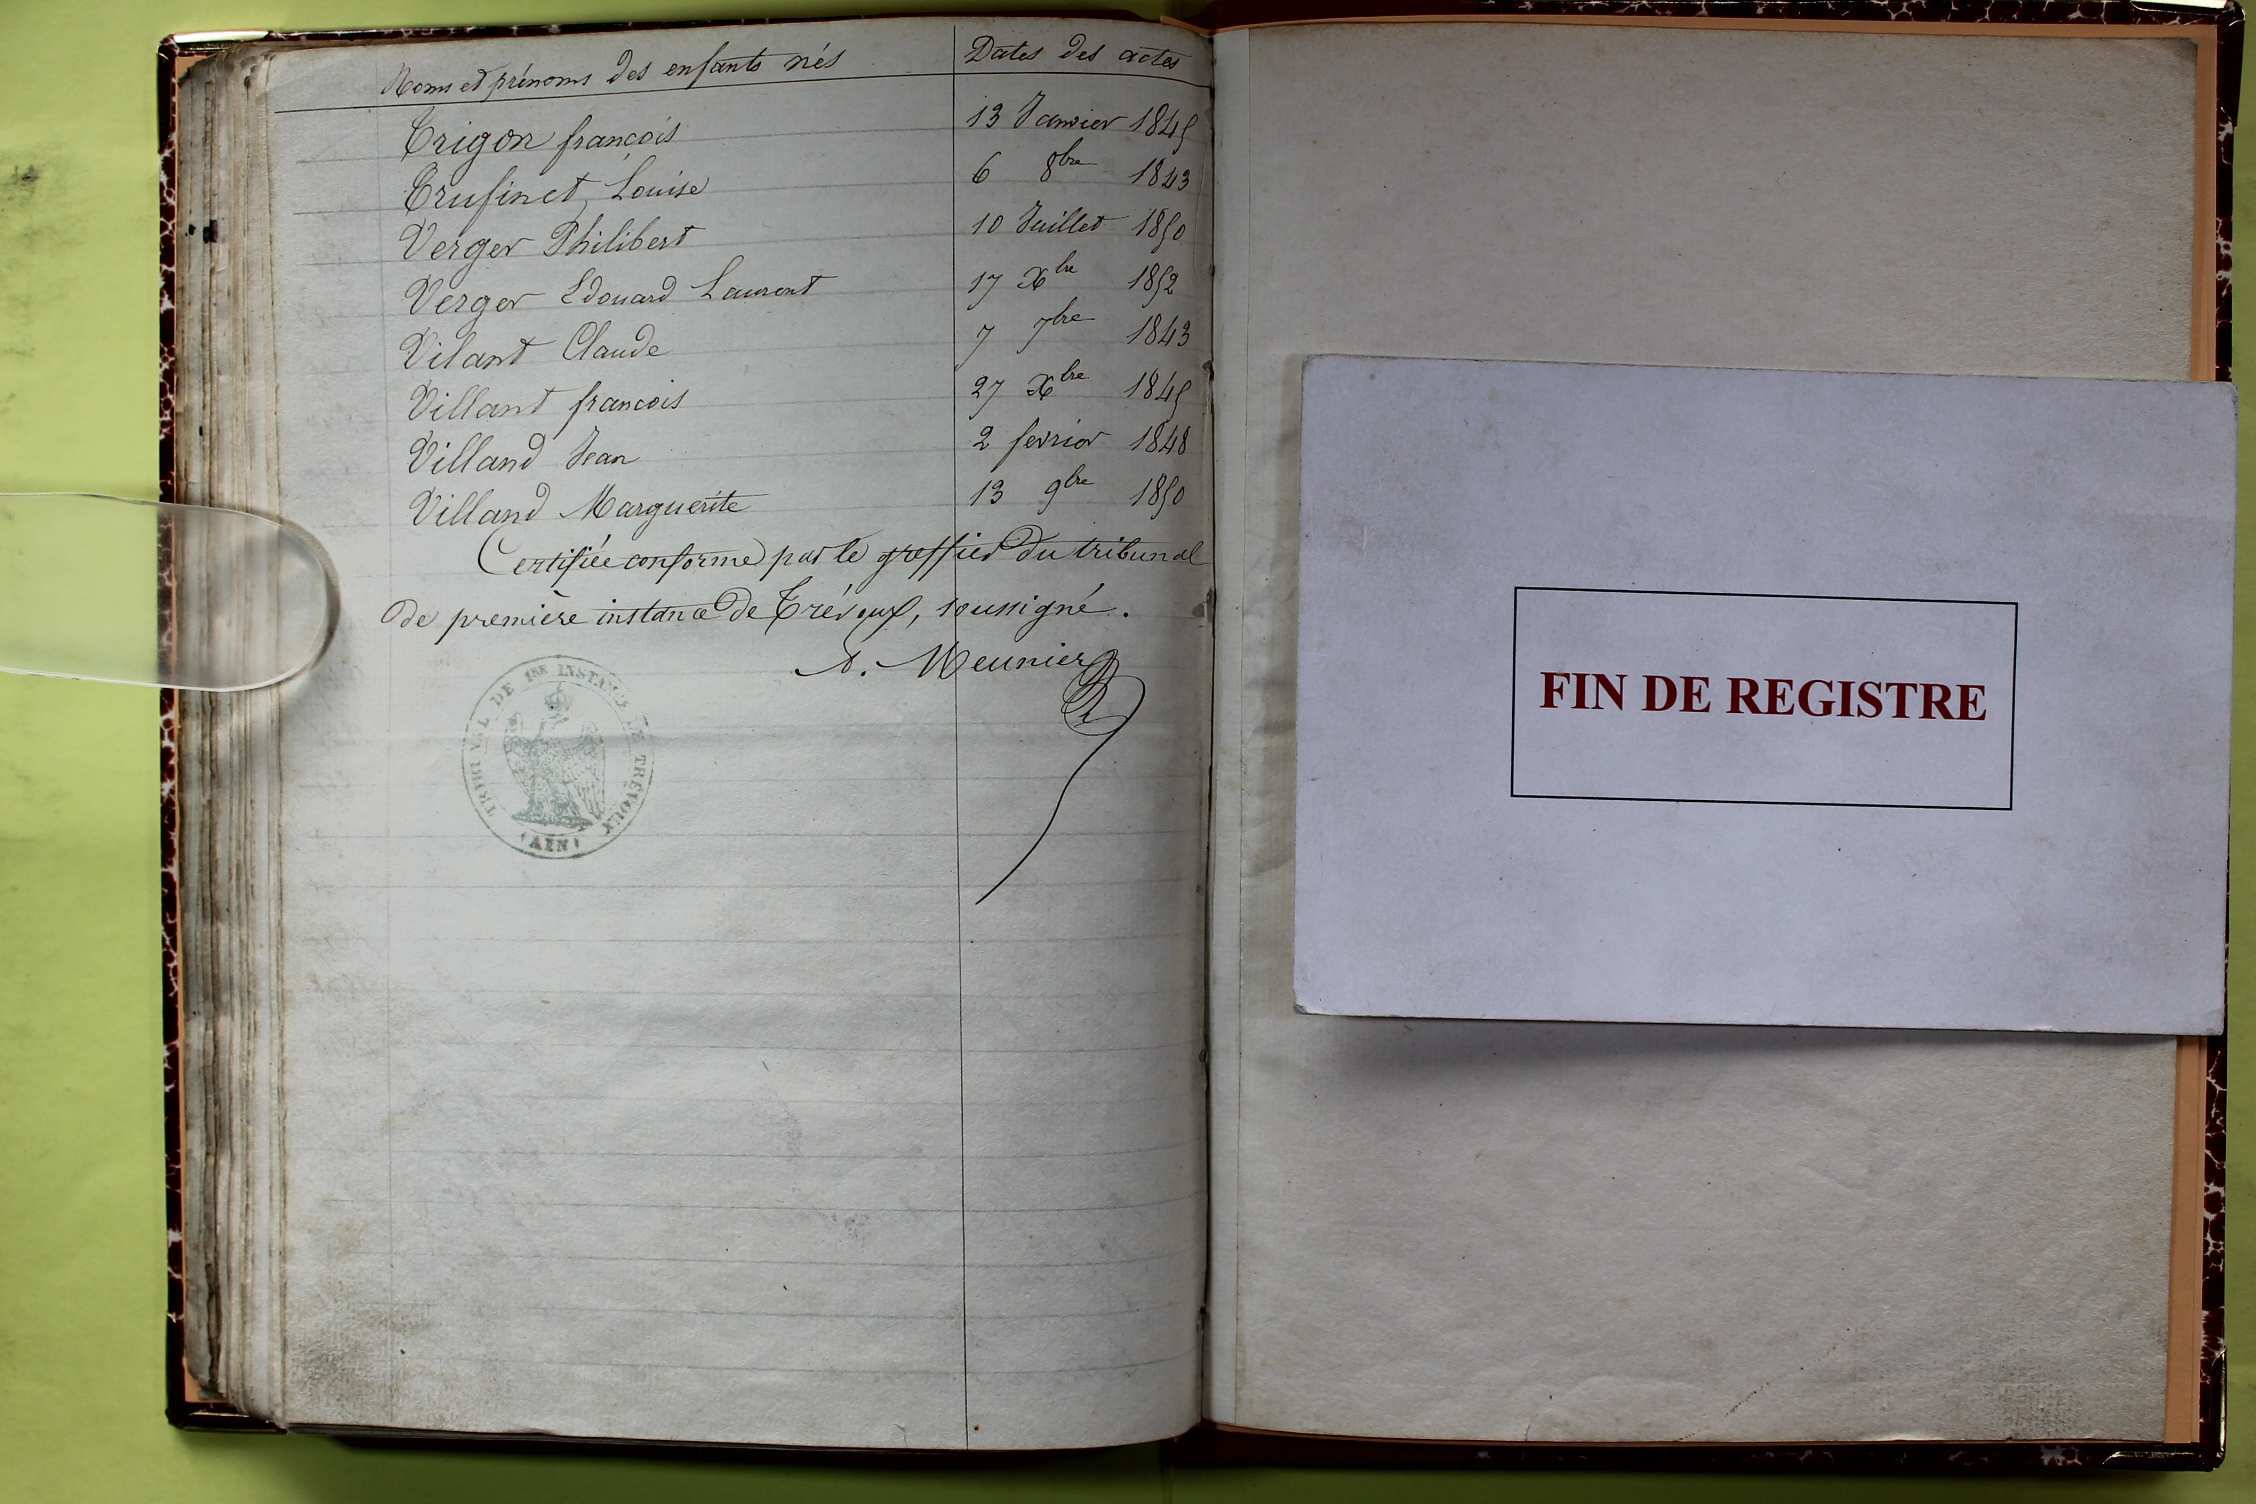 Noms et prénoms des enfants nés Dates des actes
Trigon françois 13 Janvier 1845
Trufinet, Louise 6 8bre 1843
Verger Philibert 10 Juillet 1850
Verger Edouard Laurent 17 Xbre 1852
Vilant Claude 7 7bre 1843
Villant francois 27 Xbre 1845
Villand Jean 2 fevrier 1848
Villand Marguerite 13 9bre 1850
Certifiée conforme par le greffier du tribunal
de première instance de Trévoux, soussigné.
A. Meunier
TRIBUNAL DE 1RE INSTANCE DE TREVOUX
(AIN)
FIN DE REGISTRE